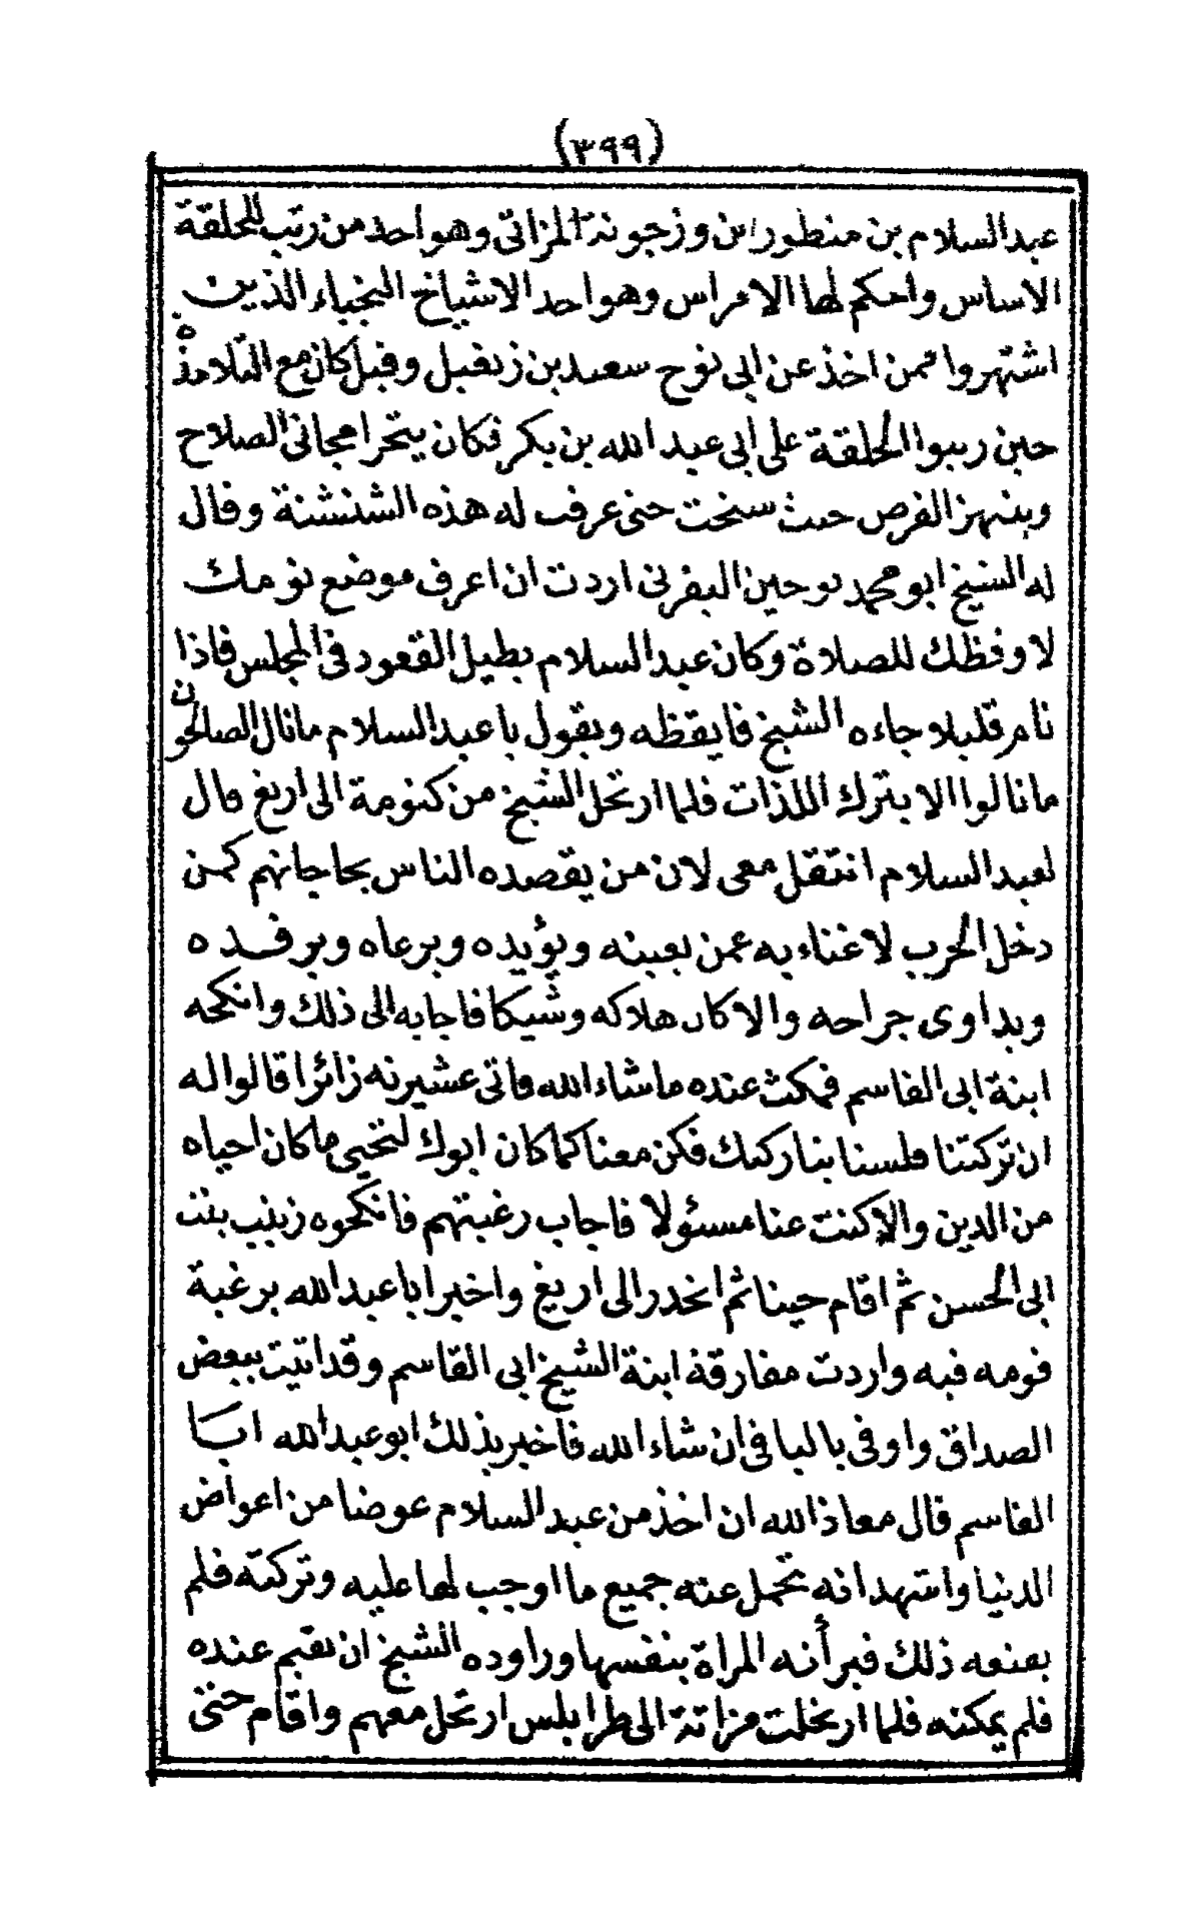 (٣٩٩)
عبد السلام بن منطور ابن وزجونة المزاتي وهو احد من رتب للحلقة
الاساس واحكم لها الامراس وهو احد الاشياخ النجباء الذين
اشتهروا ممن اخذ عن ابى نوح سعيد بن زنغيل وقيل كان مع التلامذه
حين ريبوا الحلقة على ابى عبد الله بن بكر فكان يتحرا مجانى الصلاح
وينهز الفرص حيث سنحت حتى عرفت له هذه الشنشنة وقال
له الشيخ ابو محمد بوحين اليفرنى اردت ان اعرف موضع نومك
لاوقظك للصلاة وكان عبد السلام يطيل القعود فى المجلس فاذا
نام قليلا جاءه الشيخ فايقظه ويقول يا عبد السلام ما نال الصالحون
ما نالوا الا بترك اللذات فلما ارتحل الشيخ من كنومة الى اريغ قال
لعبد السلام انتقل معى لان من يقصده الناس بحاجاتهم كمن
دخل الحرب لا غناء به عمن يعينه ويؤيده ويرعاه ويرفده
ويداوى جراحه والا كان هلاكه وشيكا فاجابه الى ذلك وانكحه
ابنة ابى القاسم فمكث عنده ما شاء الله فاتى عشيرته زائرا قالوا له
ان تركتنا فلسنا بتاركيك فكن معنا كما كان ابوك لتحيى ما كان احياه
من الدين والا كنت عنا مسئولا فاجاب رغبتهم فانكحوه زينب بنت
ابى الحسن ثم اقام حينا ثم انحدر الى اريغ واخبر ابا عبد الله برغبة
قومه فيه واردت مفارقة ابنة الشيخ ابى القاسم وقد اتيت ببعض
الصداق واوفى بالباقى ان شاء الله فاخبر بذلك ابو عبد الله ابا
القاسم قال معاذ الله ان اخذ من عبد السلام عوضا من اعواض
الدنيا واشهد انه تحمل عنه جميع ما اوجب لها عليه وتركته فلم
يمنعه ذلك فبرأنه المراة بنفسها وراوده الشيخ ان يقيم عنده
فلم يمكنه فلما ارتحلت مزاتة الى طرابلس ارتحل معهم واقام حتى